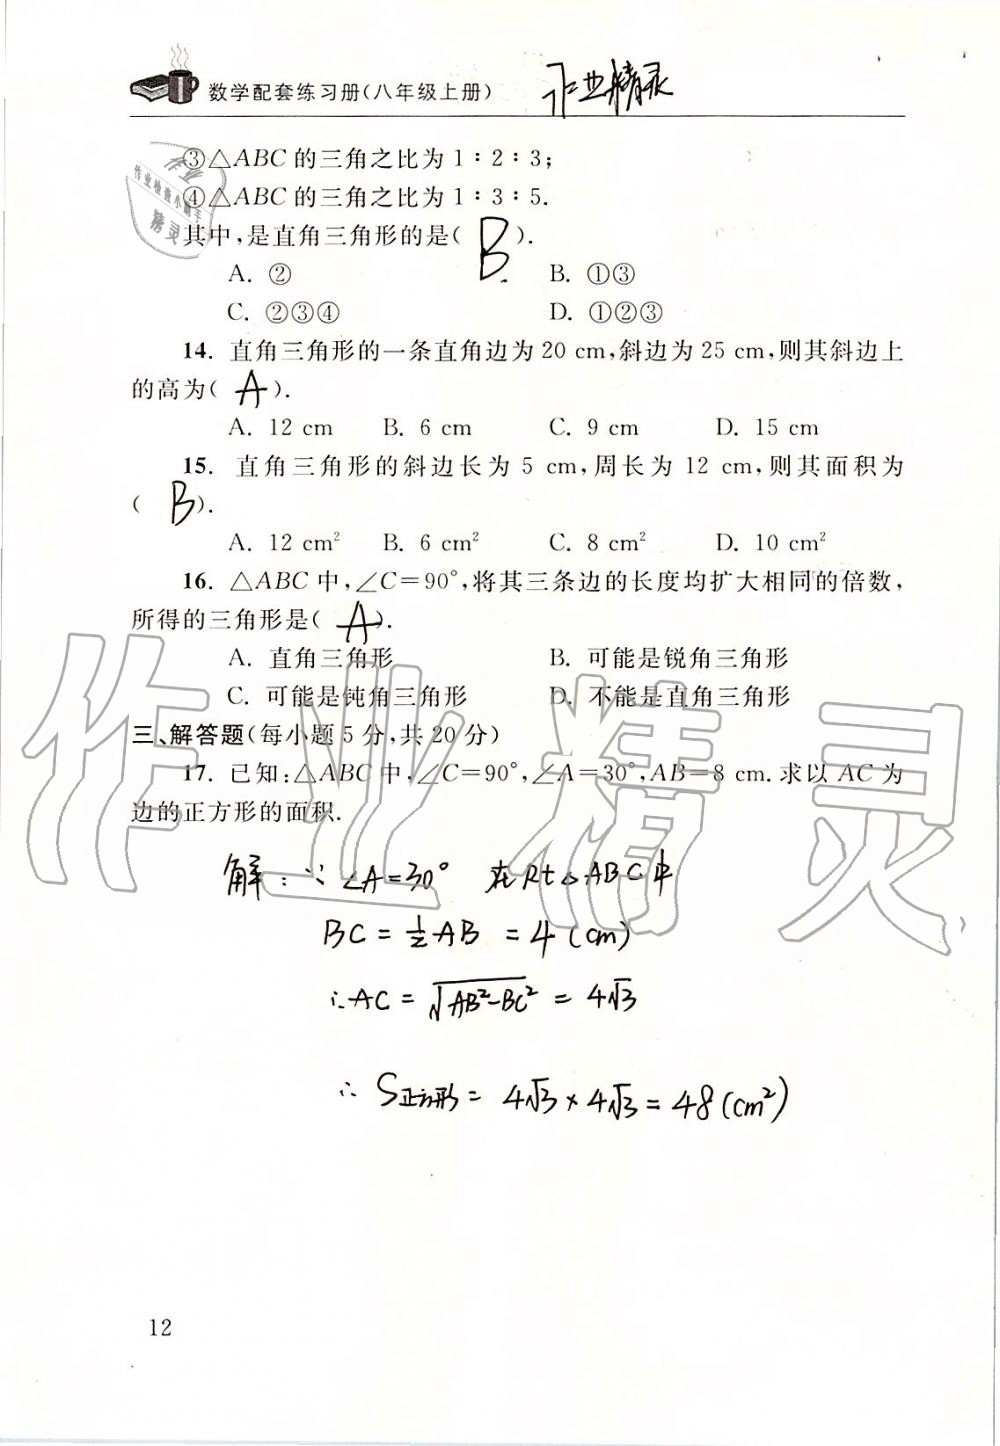 数学配套练习册(八年级上册)
作业精灵
③△ABC 的三角之比为 1∶2∶3;
④△ABC 的三角之比为 1∶3∶5.
其中,是直角三角形的是( B ).
A. ② B. ①③
C. ②③④ D. ①②③
14. 直角三角形的一条直角边为 20 cm,斜边为 25 cm,则其斜边上
的高为( A ).
A. 12 cm B. 6 cm C. 9 cm D. 15 cm
15. 直角三角形的斜边长为 5 cm,周长为 12 cm,则其面积为
( B ).
A. 12 cm² B. 6 cm² C. 8 cm² D. 10 cm²
16. △ABC 中,∠C=90°,将其三条边的长度均扩大相同的倍数,
所得的三角形是( A ).
A. 直角三角形 B. 可能是锐角三角形
C. 可能是钝角三角形 D. 不能是直角三角形
三、解答题(每小题 5 分,共 20 分)
17. 已知:△ABC 中,∠C=90°,∠A=30°,AB=8 cm.求以 AC 为
边的正方形的面积.
解:∵∠A=30° 在Rt△ABC中
BC=½AB=4(cm)
∴AC=√(AB²-BC²)=4√3
∴S正方形=4√3×4√3=48(cm²)
12
作业检查小助手
精灵
作业精灵